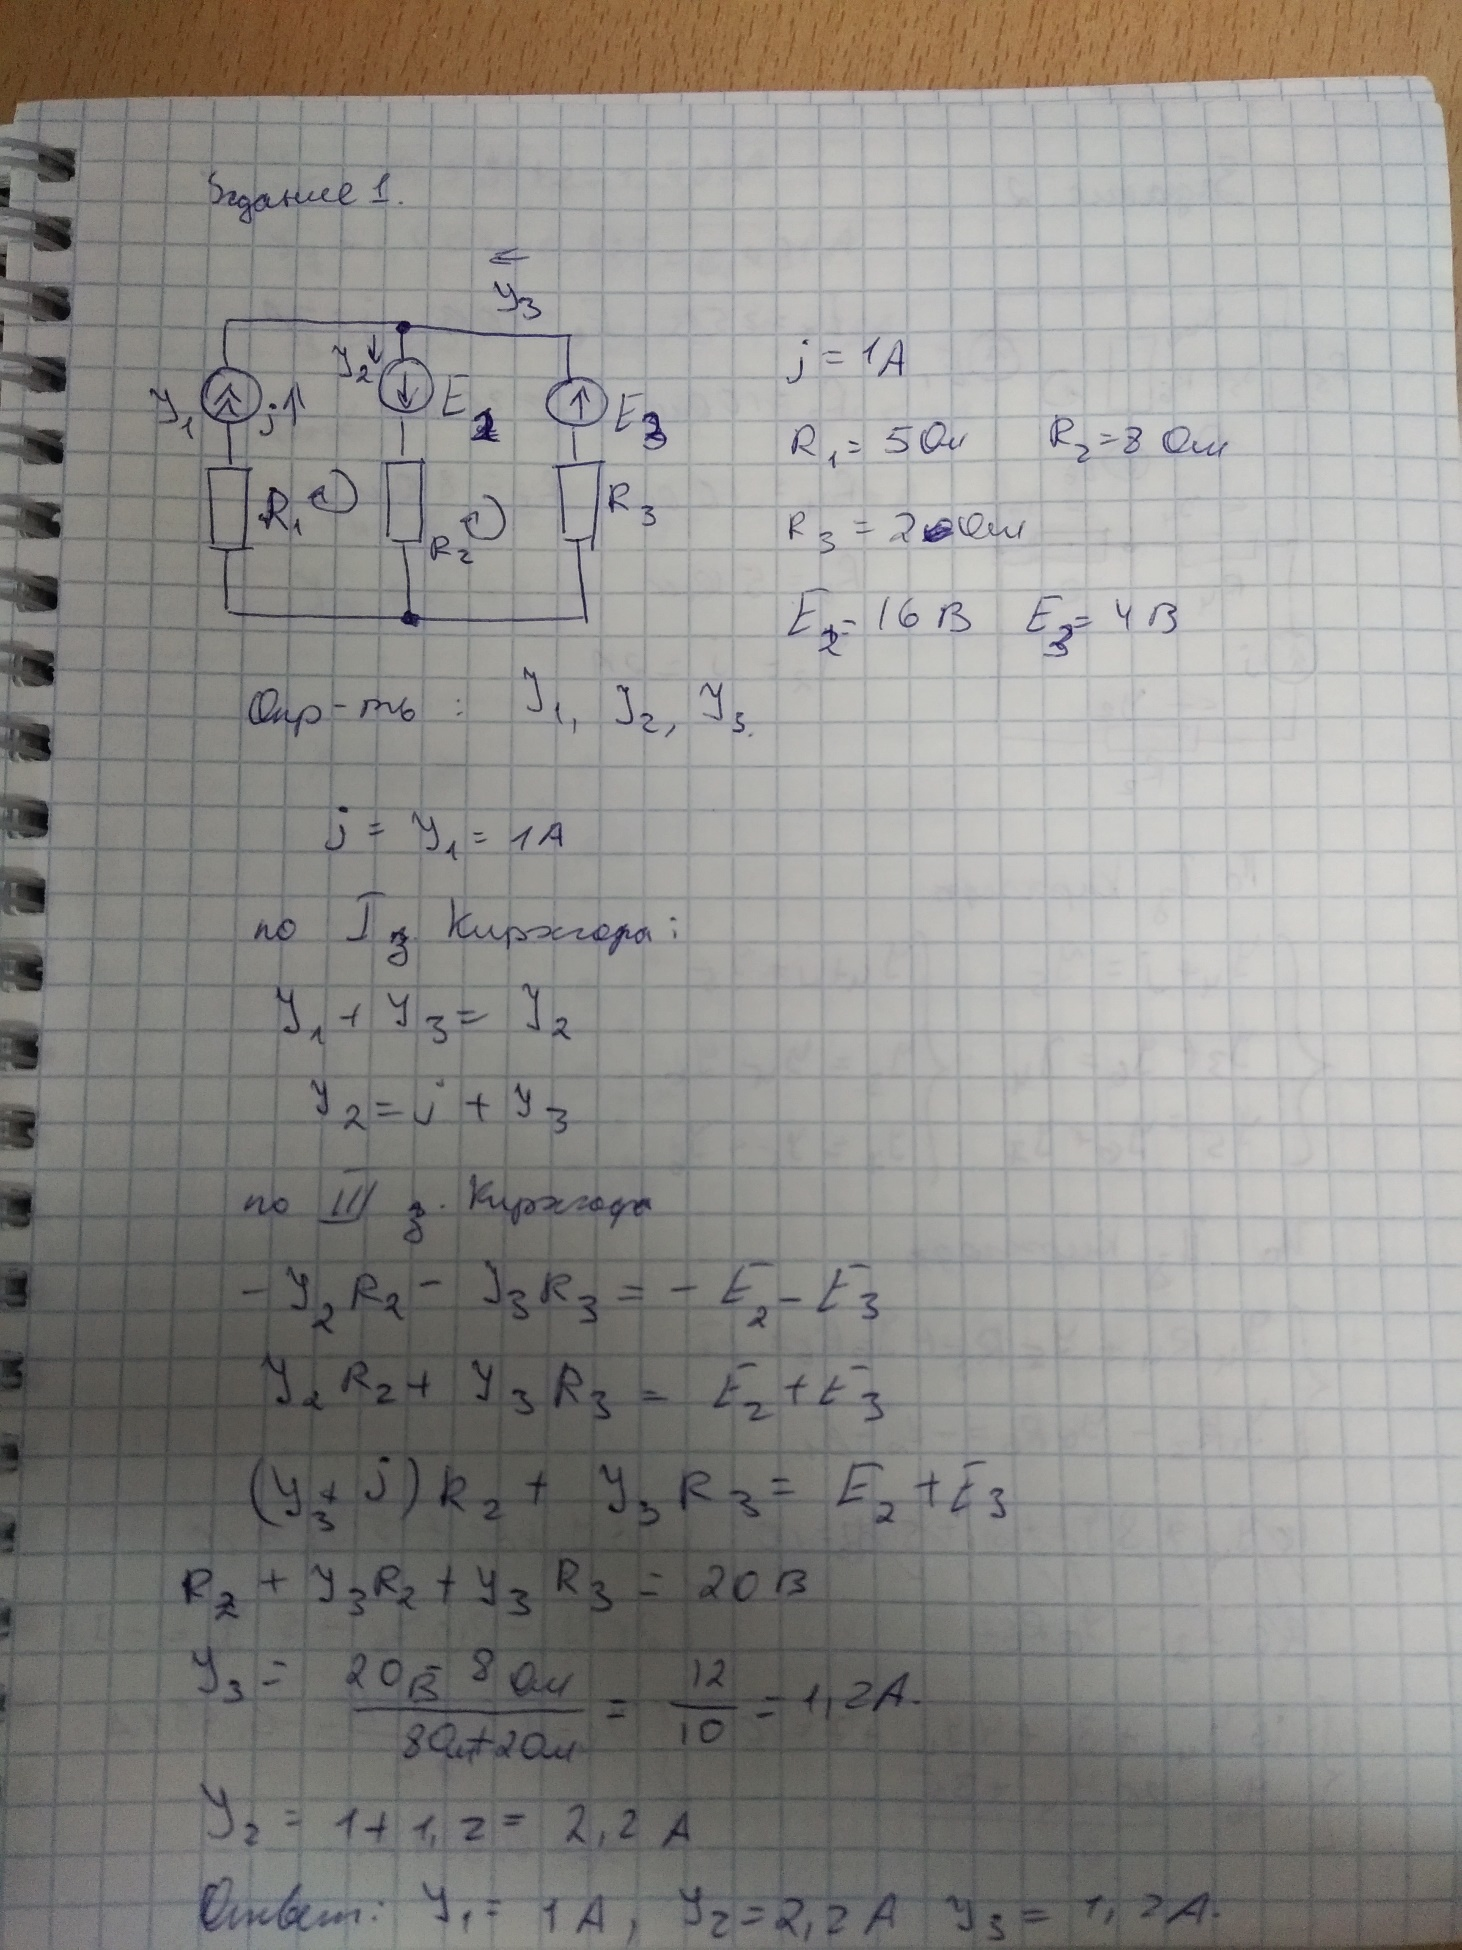 Задание 1.
J3
J1 j J2 E2 E3
R1 R2 R3
j = 1A
R1 = 5 Ом R2 = 8 Ом
R3 = 2 Ом
E2 = 16 В E3 = 4 В
Опр-ть : J1, J2, J3.
j = J1 = 1A
по I з. Кирхгофа:
J1 + J3 = J2
J2 = j + J3
по III з. Кирхгофа
- J2 R2 - J3 R3 = - E2 - E3
J2 R2 + J3 R3 = E2 + E3
(J3 + j) R2 + J3 R3 = E2 + E3
R2 + J3 R2 + J3 R3 = 20 В
J3 = (20В - 8 Ом) / (8Ом + 2Ом) = 12 / 10 = 1,2A.
J2 = 1 + 1,2 = 2,2 A
Ответ: J1 = 1A, J2 = 2,2 A J3 = 1,2A.